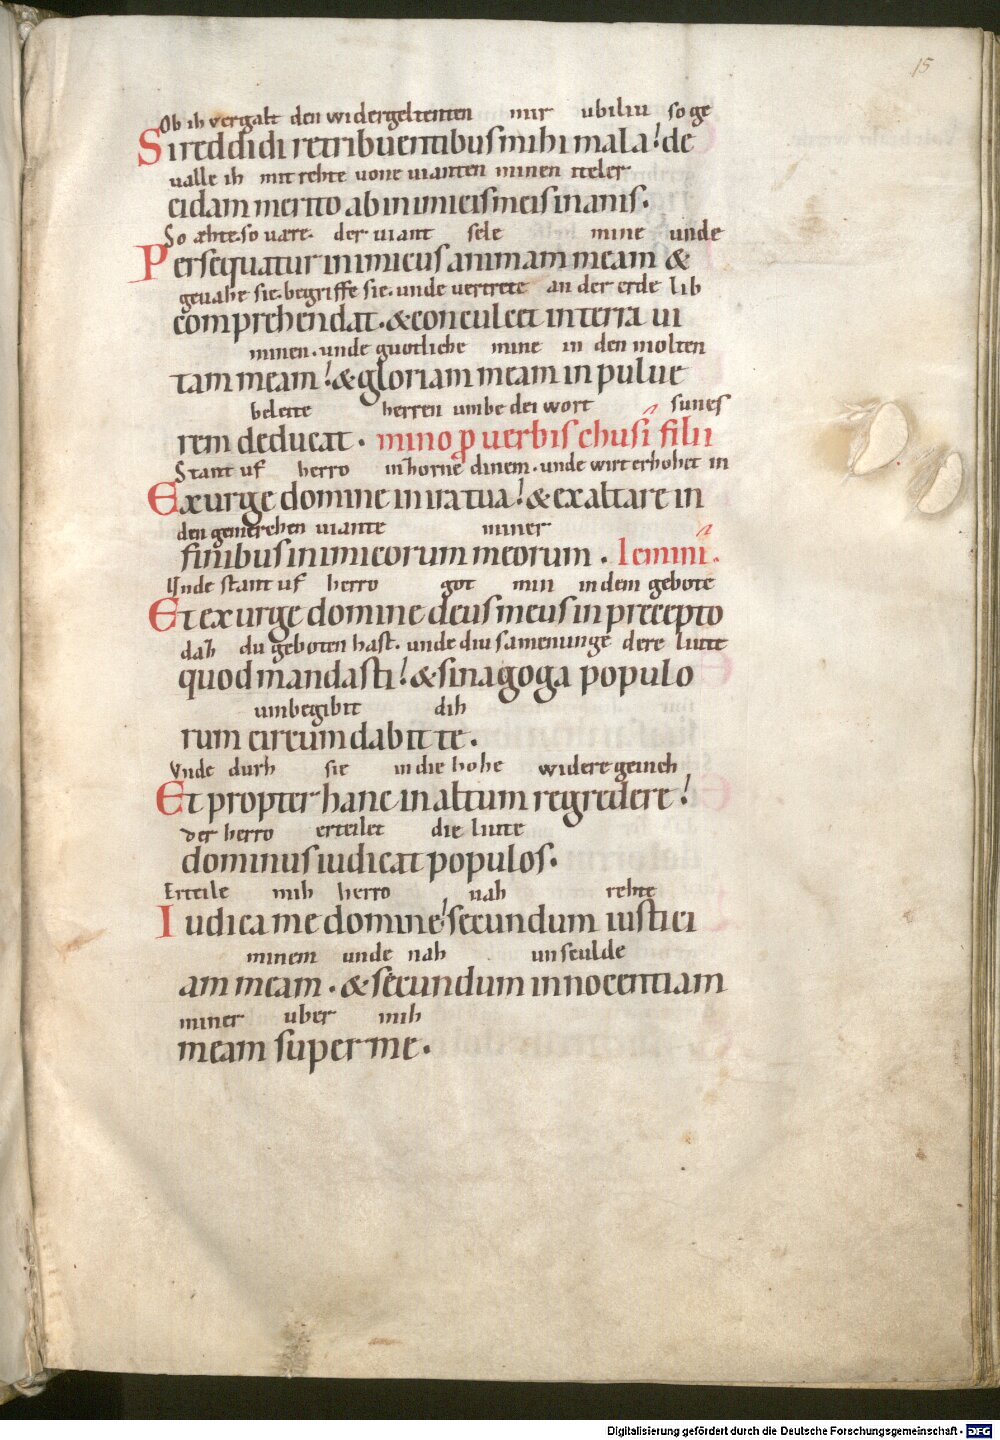 15
Ob ih vergalt den widergeltenten mir ubiliu so ge
Si reddidi retribuentibus mihi mala! de
valle ih mit rehte vone vianten minen iteler
cidam merito ab inimicis meis inanis.
So æhte. so vare. der viant sele mine unde
Persequatur inimicus animam meam &
gevahe sie. begriffe sie. unde vertrete an der erde lib
comprehendat. & conculcet in terra vi
minen. unde guotliche mine in den molten
tam meam! & gloriam meam in pulve
beleite herren umbe dei wort sunes
rem deducat. mino ꝓ verbis chusi filii
Stant uf herro in horne dinem. unde wirt erhohet in
Exurge domine in ira tua! & exaltare in
den gemerchen viante miner
finibus inimicorum meorum. Iemini.
Unde stant uf herro got min in dem gebote
Et exurge domine deus meus in precepto
daz du geboten hast. unde diu samenunge dere liute
quod mandasti! & sinagoga populo
umbegibit dih
rum circumdabit te.
Unde durh sie in die hohe widere geinch
Et propter hanc in altum regredere!
der herro erteilet die liute
dominus iudicat populos.
Erteile mih herro nah rehte
Iudica me domine! secundum iustici
minem unde nah unsculde
am meam. & secundum innocentiam
miner uber mih
meam super me.
Digitalisierung gefördert durch die Deutsche Forschungsgemeinschaft - DFG